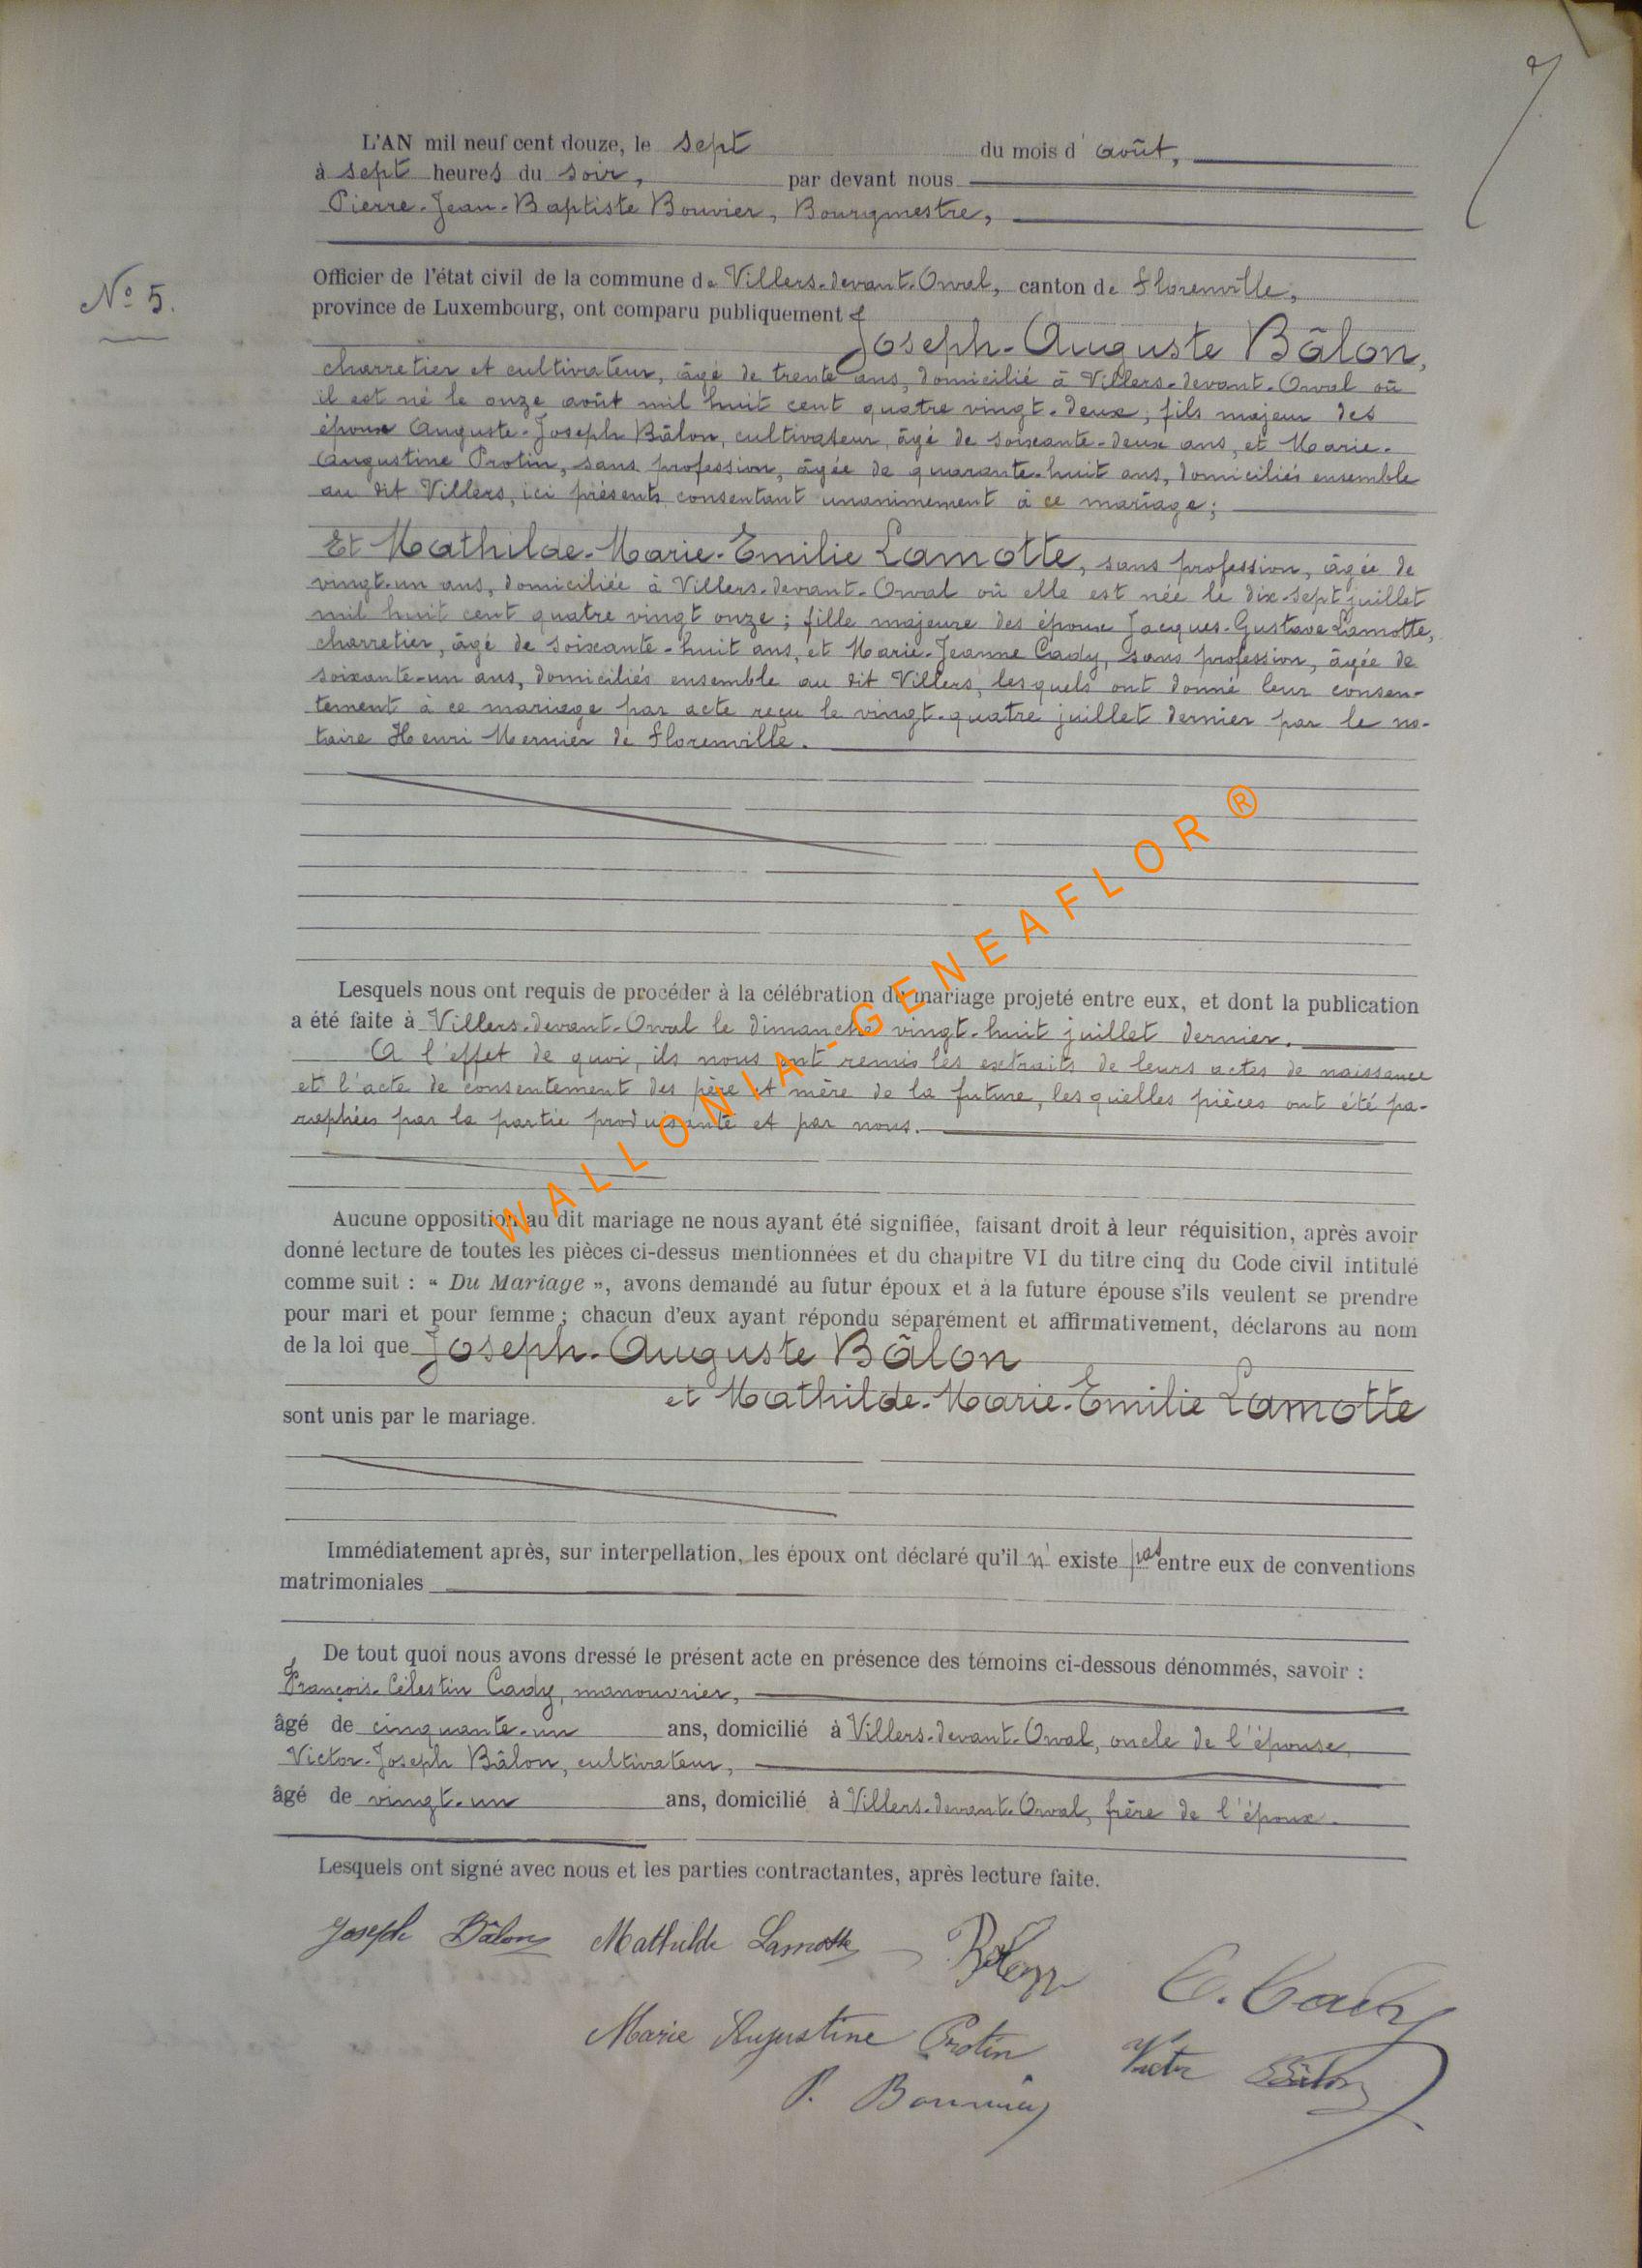 7
L'AN mil neuf cent douze, le sept du mois d'août,
à sept heures du soir, par devant nous
Pierre-Jean-Baptiste Bouvier, Bourgmestre,
Officier de l'état civil de la commune de Villers-devant-Orval, canton de Florenville,
N° 5.
province de Luxembourg, ont comparu publiquement :
Joseph-Auguste Bâlon,
charretier et cultivateur, âgé de trente ans, domicilié à Villers-devant-Orval où
il est né le onze août mil huit cent quatre vingt-deux, fils majeur des
époux Auguste-Joseph Bâlon, cultivateur, âgé de soixante-deux ans, et Marie-
Augustine Protin, sans profession, âgée de quarante-huit ans, domiciliés ensemble
au dit Villers, ici présents consentant unanimement à ce mariage ;
Et Mathilde-Marie-Emilie Lamotte, sans profession, âgée de
vingt-un ans, domiciliée à Villers-devant-Orval où elle est née le dix-sept juillet
mil huit cent quatre vingt onze ; fille majeure des époux Jacques-Gustave Lamotte,
charretier, âgé de soixante-huit ans, et Marie-Jeanne Cady, sans profession, âgée de
soixante-un ans, domiciliés ensemble au dit Villers, lesquels ont donné leur consen-
tement à ce mariage par acte reçu le vingt-quatre juillet dernier par le no-
taire Henri Mernier de Florenville.
Lesquels nous ont requis de procéder à la célébration du mariage projeté entre eux, et dont la publication
a été faite à Villers-devant-Orval le dimanche vingt-huit juillet dernier.
A l'effet de quoi, ils nous ont remis les extraits de leurs actes de naissance
et l'acte de consentement des père et mère de la future, lesquelles pièces ont été pa-
raphées par la partie produisante et par nous.
WALLONIA-GENEAFLOR ®
Aucune opposition au dit mariage ne nous ayant été signifiée, faisant droit à leur réquisition, après avoir
donné lecture de toutes les pièces ci-dessus mentionnées et du chapitre VI du titre cinq du Code civil intitulé
comme suit : « Du Mariage », avons demandé au futur époux et à la future épouse s'ils veulent se prendre
pour mari et pour femme ; chacun d'eux ayant répondu séparément et affirmativement, déclarons au nom
de la loi que Joseph-Auguste Bâlon
et Mathilde-Marie-Emilie Lamotte
sont unis par le mariage.
Immédiatement après, sur interpellation, les époux ont déclaré qu'il n' existe pas entre eux de conventions
matrimoniales
De tout quoi nous avons dressé le présent acte en présence des témoins ci-dessous dénommés, savoir :
François-Célestin Cady, manouvrier,
âgé de cinquante-un ans, domicilié à Villers-devant-Orval, oncle de l'épouse,
Victor-Joseph Bâlon, cultivateur,
âgé de vingt-un ans, domicilié à Villers-devant-Orval, frère de l'époux.
Lesquels ont signé avec nous et les parties contractantes, après lecture faite.
Joseph Bâlon Mathilde Lamotte Bâlon C. Cady
Marie Augustine Protin Victor Bâlon
P. Bouvier